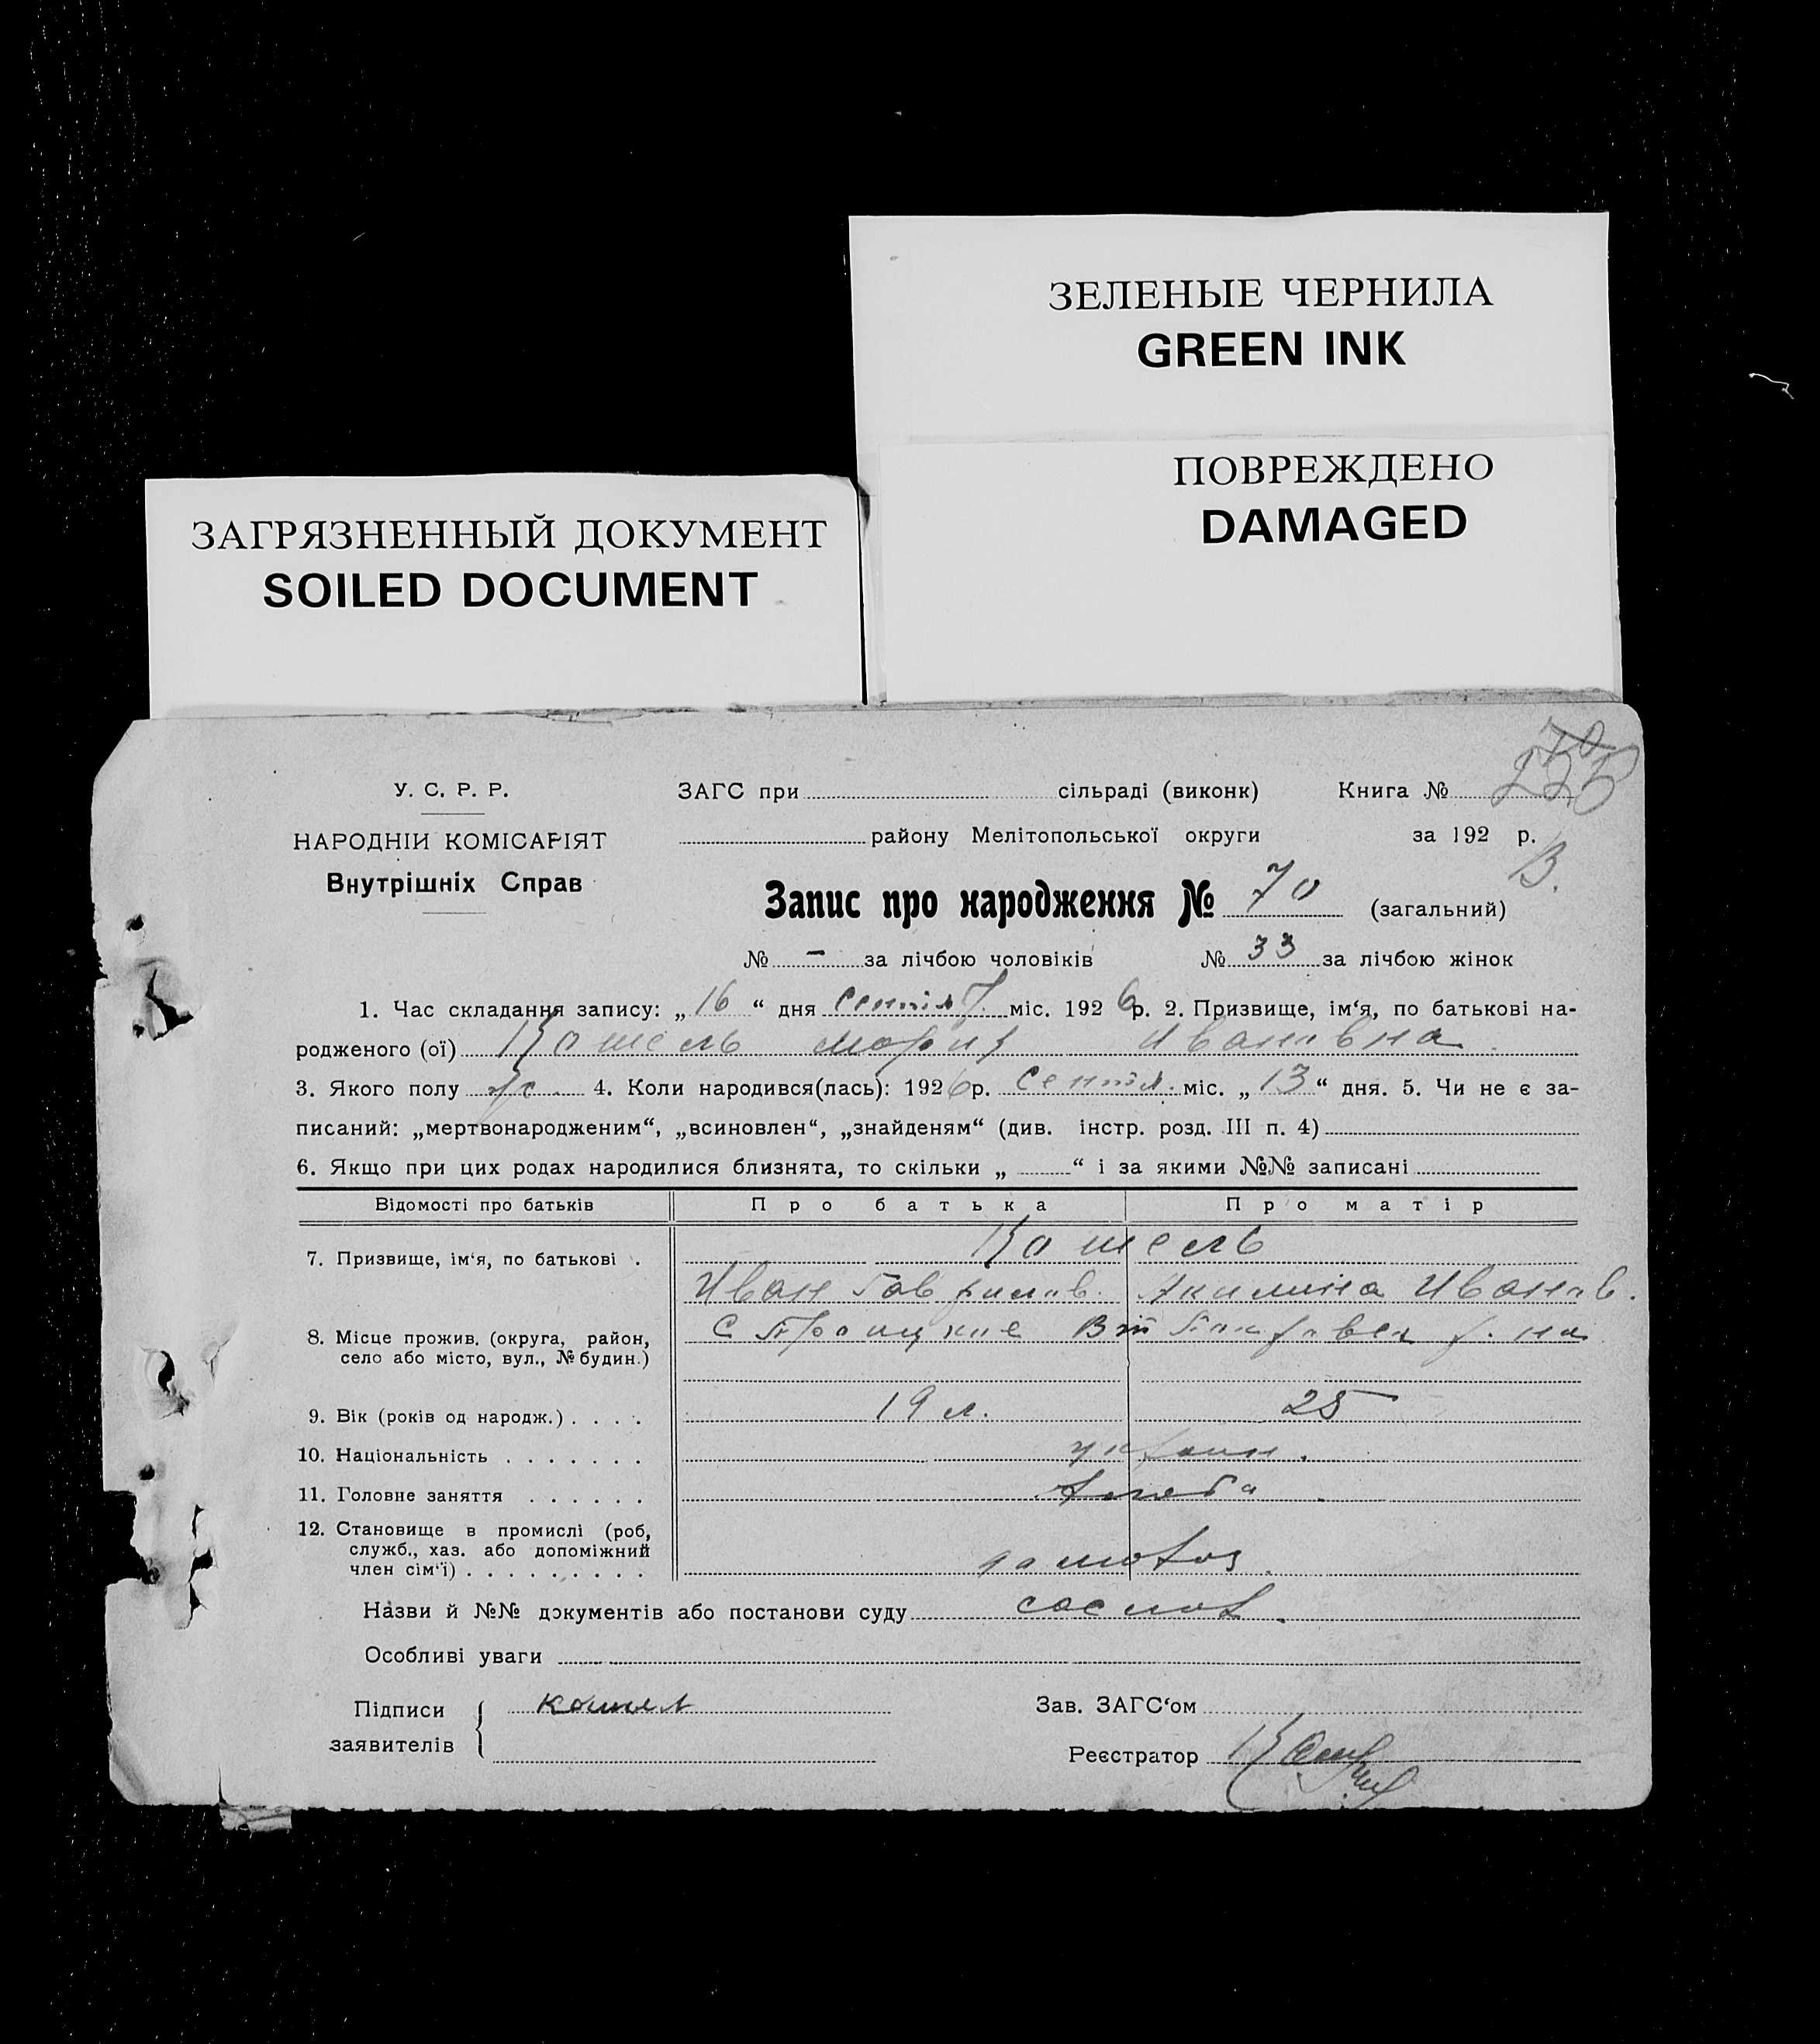 ЗЕЛЕНЫЕ ЧЕРНИЛА
GREEN INK
ПОВРЕЖДЕНО
DAMAGED
ЗАГРЯЗНЕННЫЙ ДОКУМЕНТ
SOILED DOCUMENT
У. С. Р. Р.
НАРОДНІЙ КОМІСАРІЯТ
Внутрішніх Справ
ЗАГС при сільраді (виконк) Книга №
району Мелітопольської округи за 192 р.
В.
Запис про народження № 70 (загальний)
№ – за лічбою чоловіків № 33 за лічбою жінок
1. Час складання запису: „16“ дня Сентября міс. 1926 р. 2. Призвище, ім‘я, по батькові на-
родженого (ої) Кошель Мария Ивановна
3. Якого полу ж. 4. Коли народився(лась): 1926 р. Сентя. міс. „13“ дня. 5. Чи не є за-
писаний: „мертвонародженим“, „всиновлен“, „знайденям“ (див. інстр. розд. III п. 4)
6. Якщо при цих родах народилися близнята, то скільки „ “ і за якими №№ записані
Відомості про батьків Про батька Про матір
7. Призвище, ім‘я, по батькові . Кошель
Иван Гаврилов. Акилина Иванов.
8. Місце прожив. (округа, район, С Троицкое
село або місто, вул., № будин.)
9. Вік (років од народж.) . . . . 19 л. 25
10. Національність . . . . . . . украин.
11. Головне заняття . . . . . .
12. Становище в промислі (роб,
служб., хаз. або допоміжний
член сім‘ї) . . . . . . . . .
Назви й №№ документів або постанови суду
Особливі уваги
Підписи Кошел Зав. ЗАГС‘ом
заявителів
Реєстратор